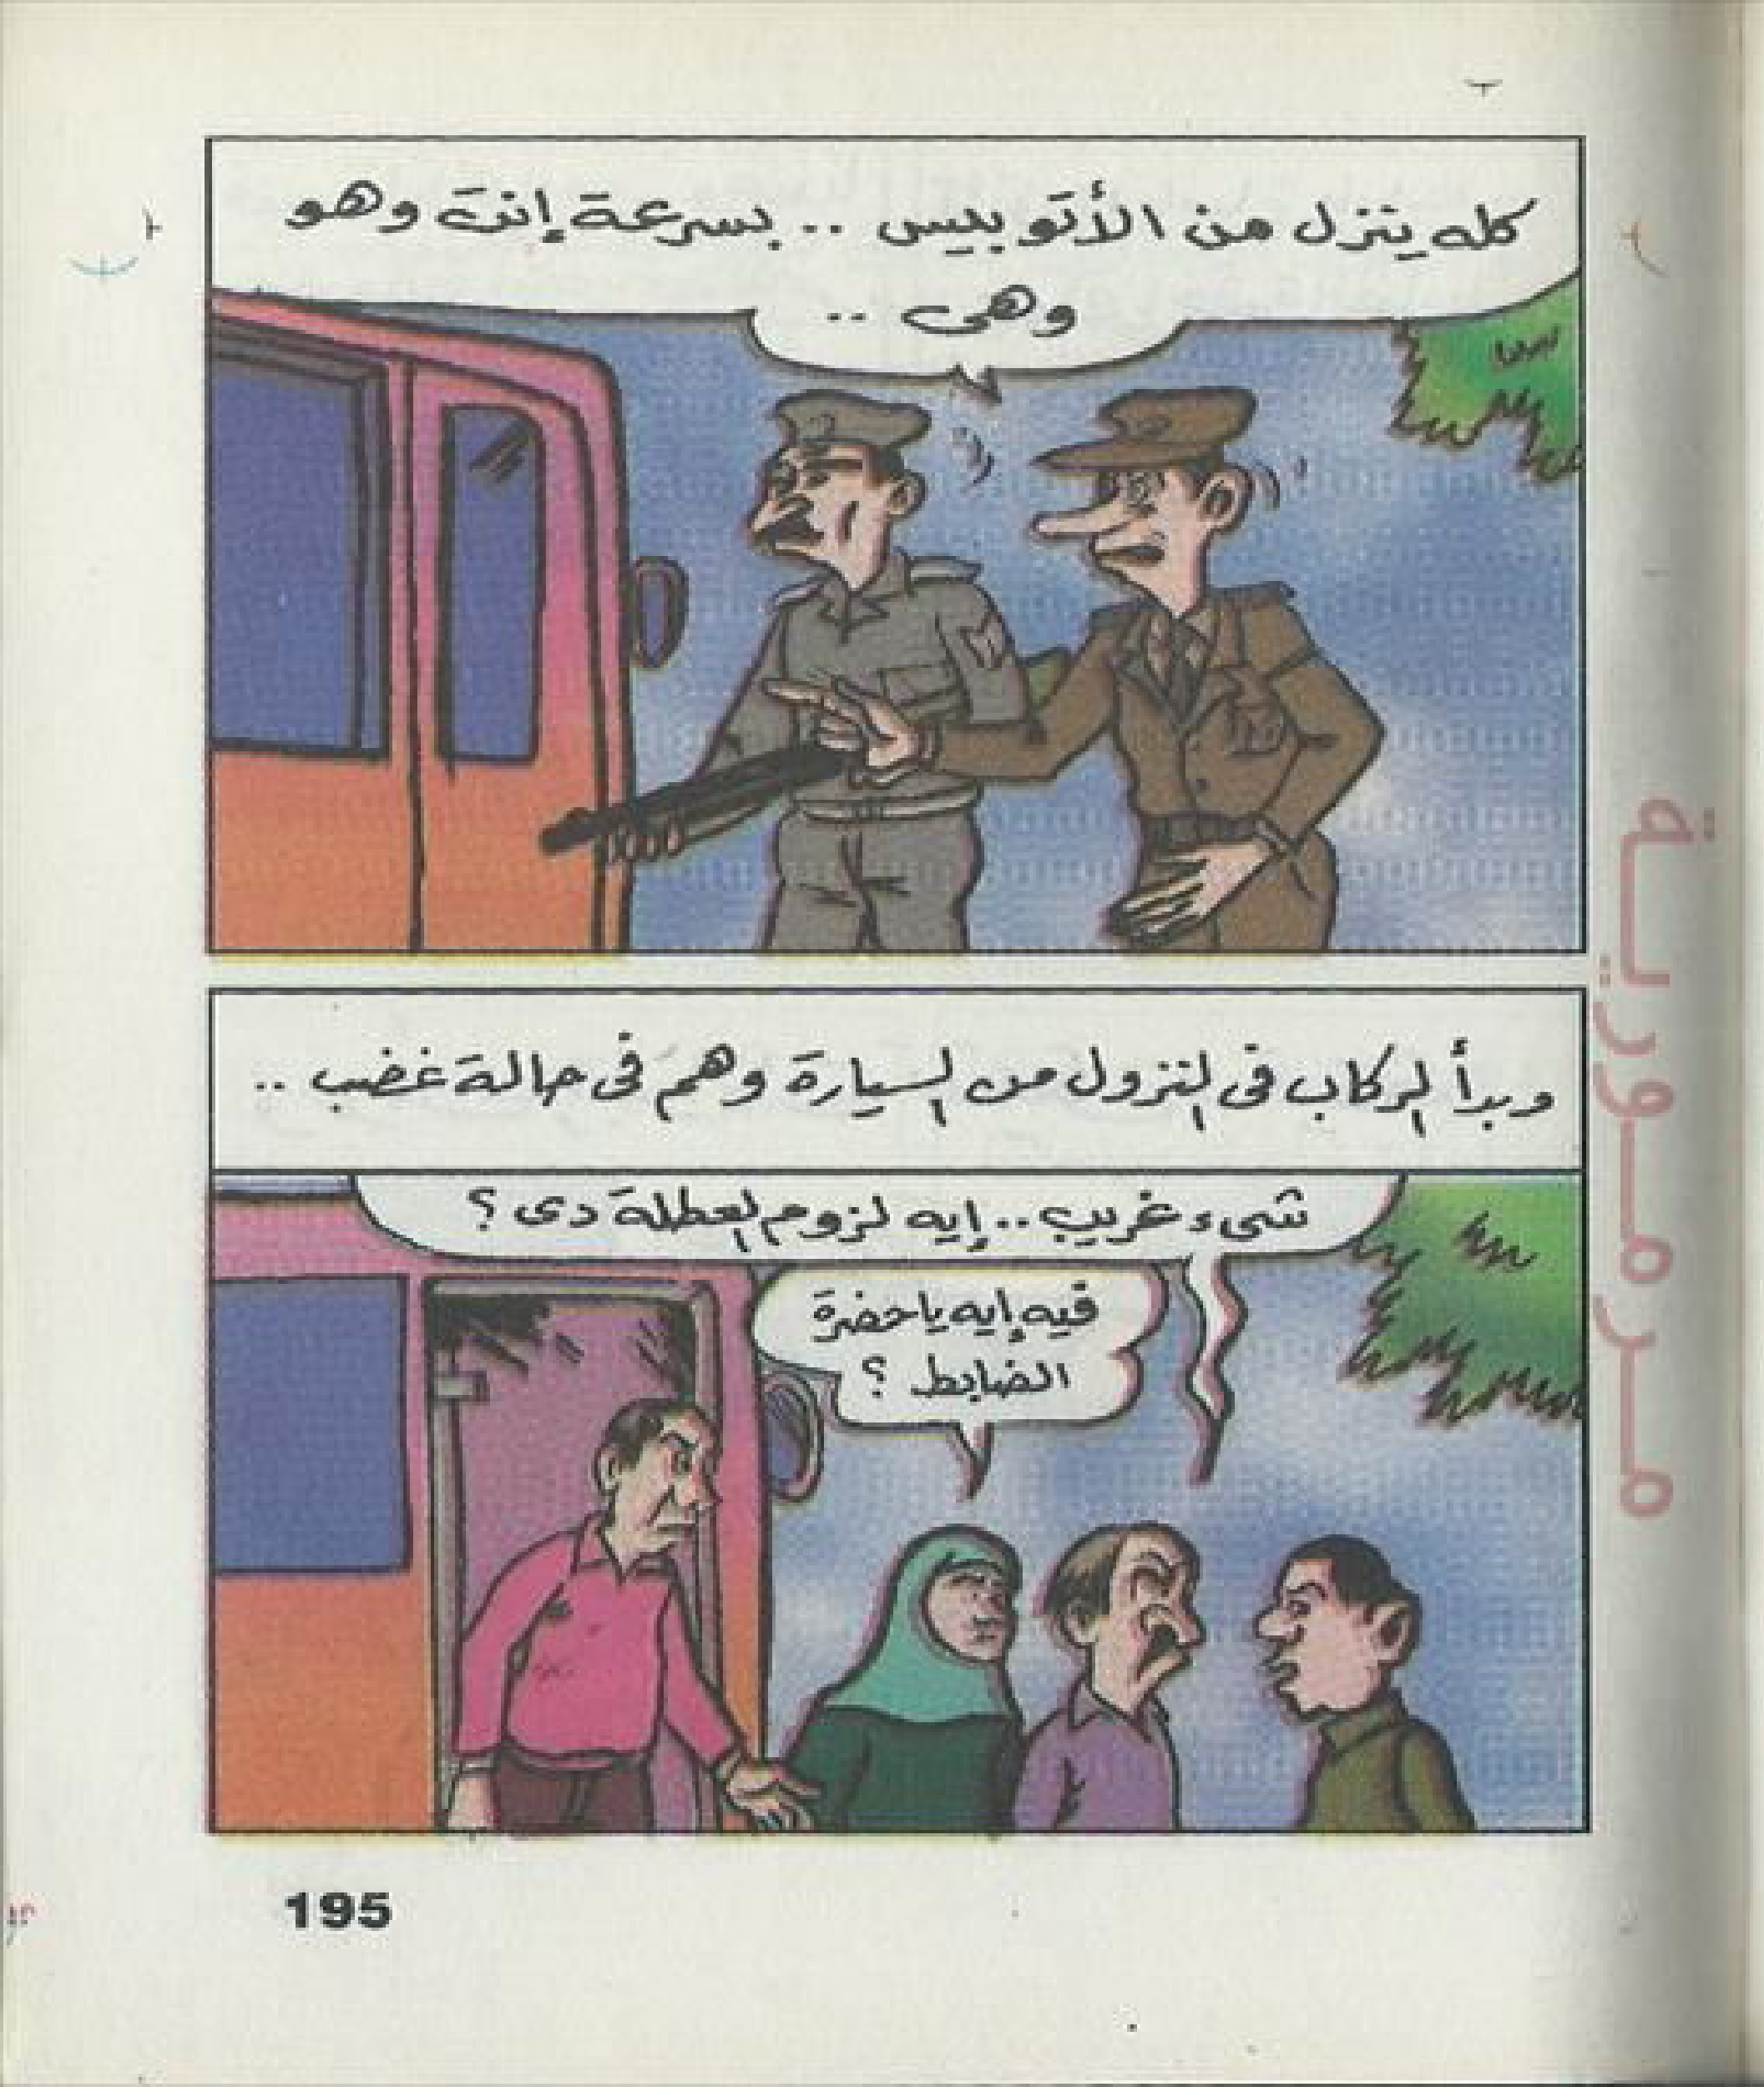 كله ينزل من الأتوبيس .. بسرعة إنت وهو
وهى ..
وبدأ الركاب فى النزول من السيارة وهم فى حالة غضب ..
شىء غريب .. إيه لزوم العطلة دى ؟
فيه إيه يا حضرة
الضابط ؟
مرمورية
195